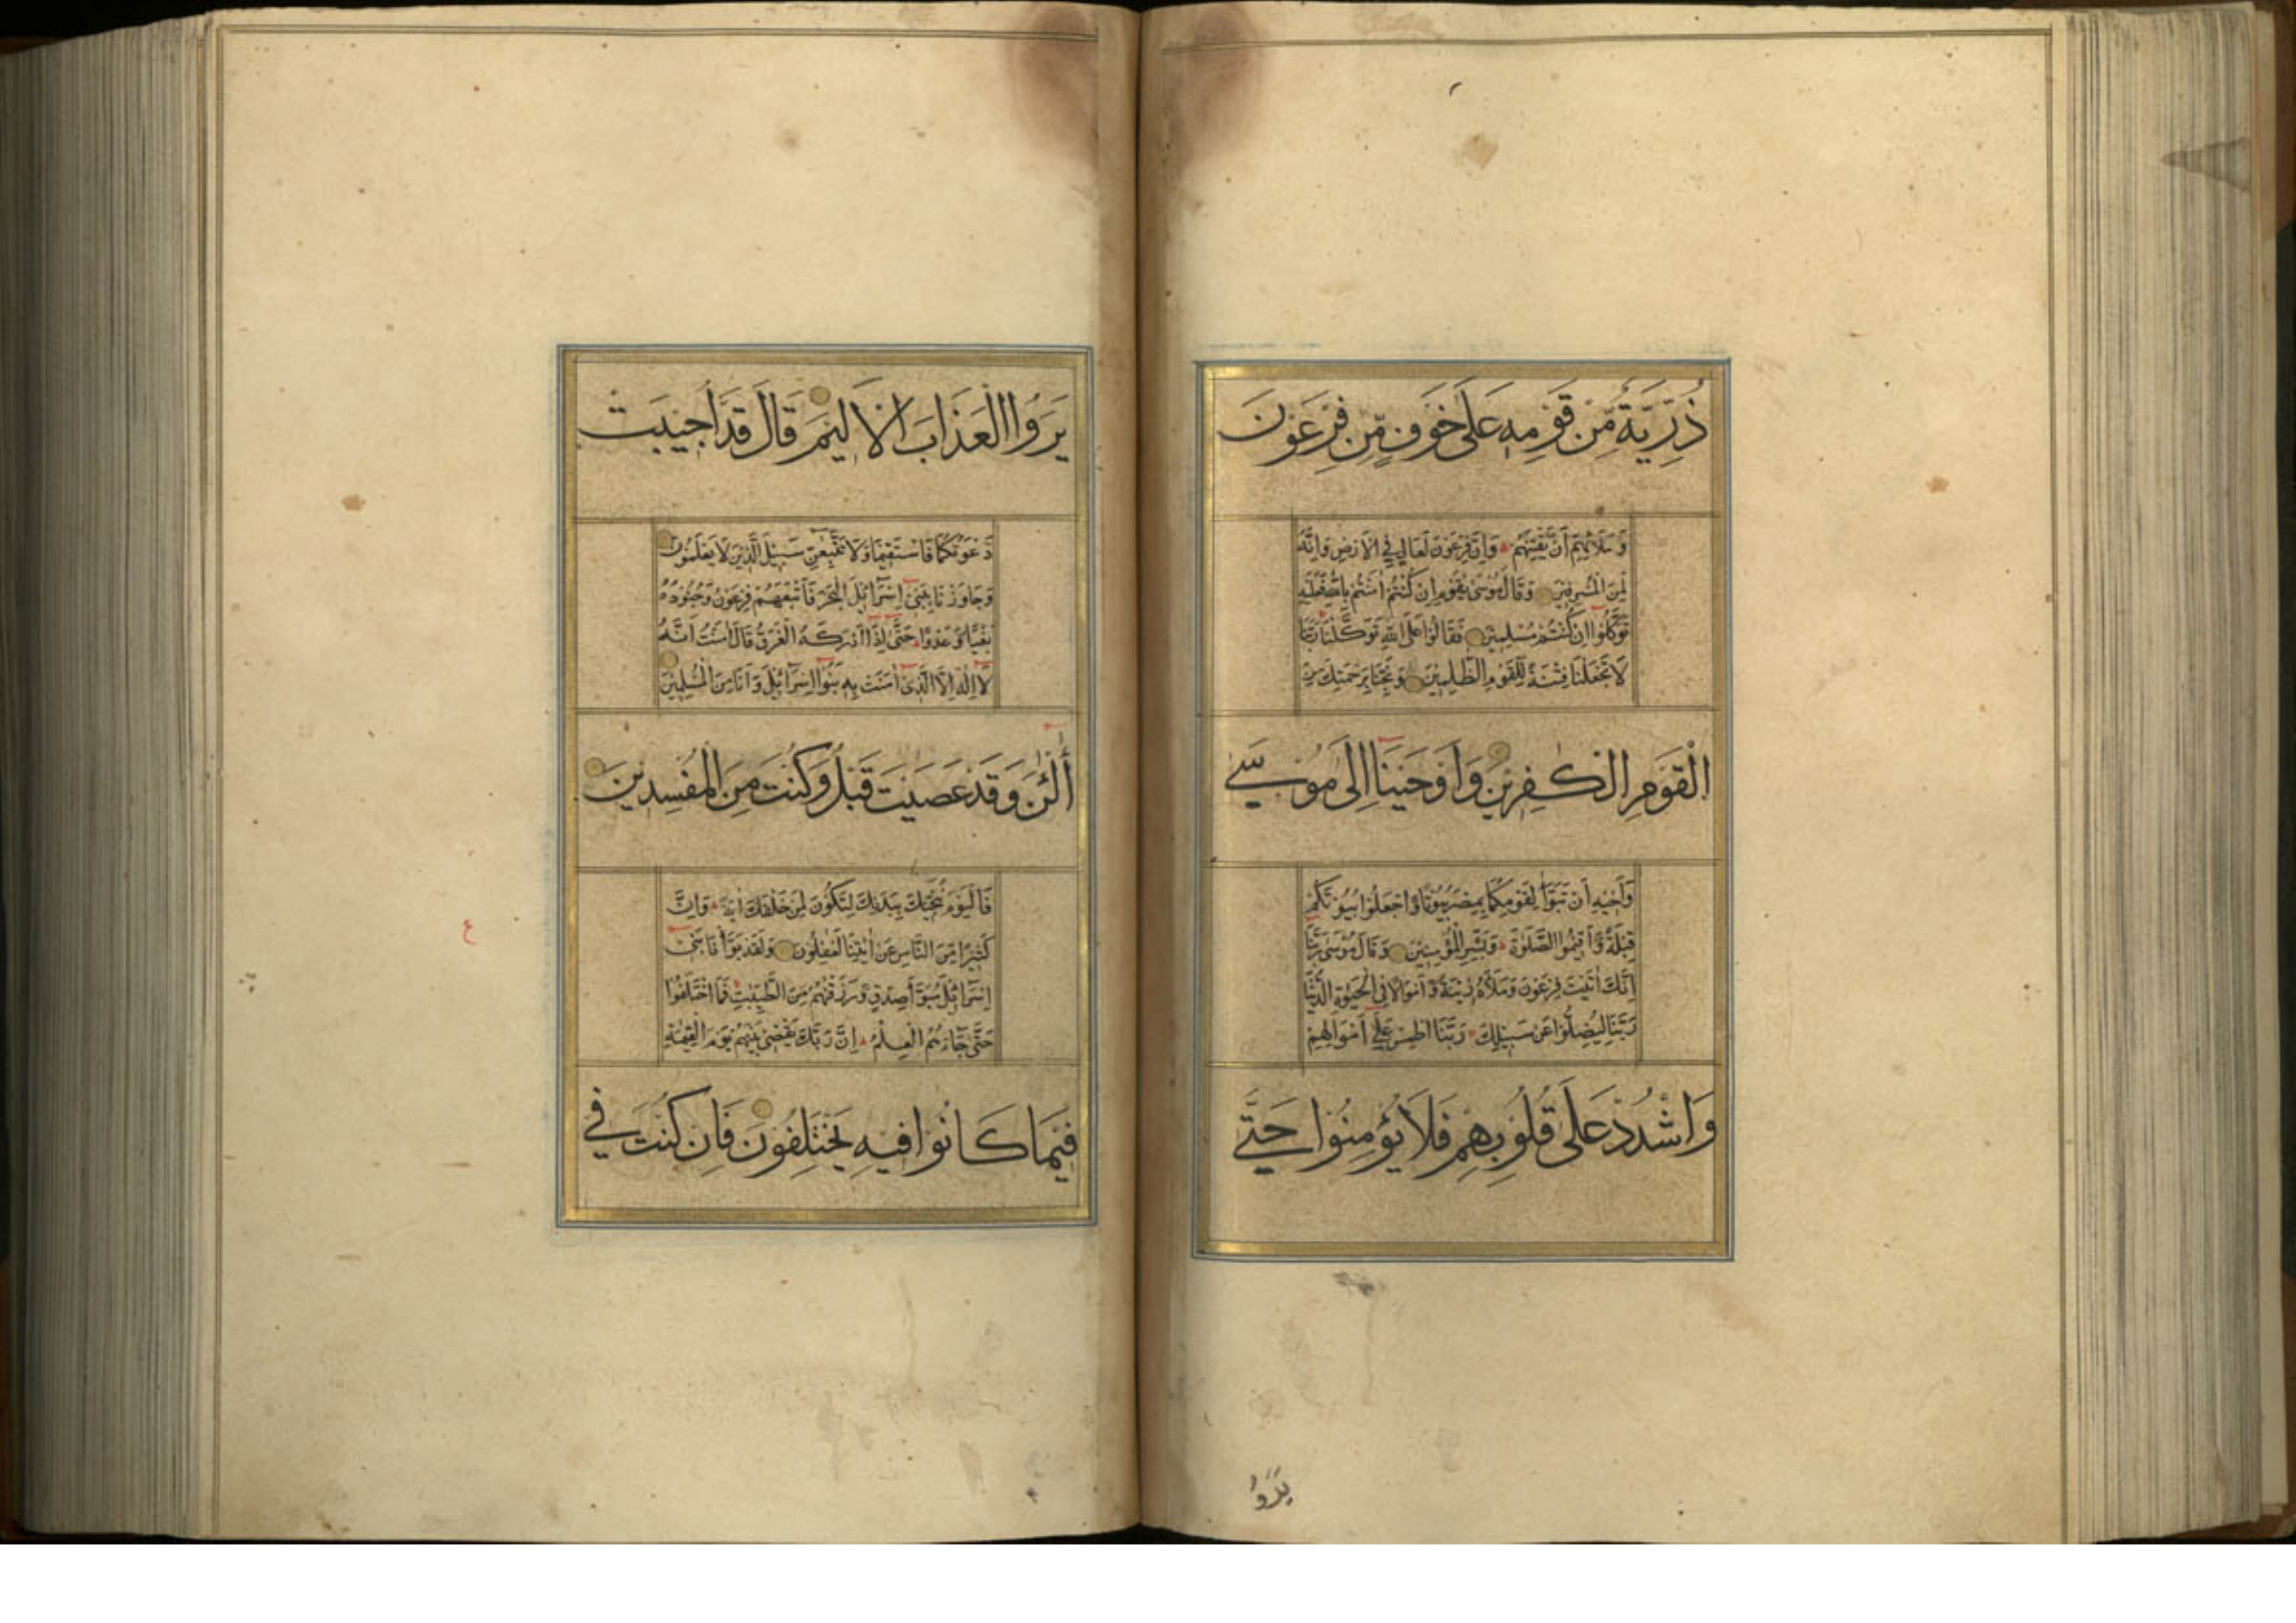 ذُرِّيَّةٌ مِّن قَوْمِهِ عَلَى خَوْفٍ مِّن فِرْعَوْنَ
وَمَلَائِهِمْ أَنْ يَفْتِنَهُمْ وَاِنَّ فِرْعَوْنَ لَعَالٍ فِي الْأَرْضِ وَاِنَّهُ
لَمِنَ الْمُسْرِفِينَ وَقَالَ مُوسَى يٰقَوْمِ اِنْ كُنْتُمْ اٰمَنْتُمْ بِاللّٰهِ فَعَلَيْهِ
تَوَكَّلُوا اِنْ كُنْتُمْ مُسْلِمِينَ فَقَالُوا عَلَى اللّٰهِ تَوَكَّلْنَا رَبَّنَا
لَا تَجْعَلْنَا فِتْنَةً لِلْقَوْمِ الظّٰلِمِينَ وَنَجِّنَا بِرَحْمَتِكَ مِنَ
الْقَوْمِ الْكٰفِرِينَ وَاَوْحَيْنَا اِلَى مُوسٰى
وَاَخِيهِ اَنْ تَبَوَّاٰ لِقَوْمِكُمَا بِمِصْرَ بُيُوتًا وَاجْعَلُوا بُيُوتَكُمْ
قِبْلَةً وَاَقِيمُوا الصَّلٰوةَ وَبَشِّرِ الْمُؤْمِنِينَ وَقَالَ مُوسٰى رَبَّنَا
اِنَّكَ اٰتَيْتَ فِرْعَوْنَ وَمَلَاَهُ زِينَةً وَاَمْوَالًا فِي الْحَيٰوةِ الدُّنْيَا
رَبَّنَا لِيُضِلُّوا عَنْ سَبِيلِكَ رَبَّنَا اطْمِسْ عَلٰى اَمْوَالِهِمْ
وَاشْدُدْ عَلَى قُلُوبِهِمْ فَلَا يُؤْمِنُوا حَتّٰى
يَرَوُا
يَرَوُا الْعَذَابَ الْاَلِيمَ قَالَ قَدْ اُجِيبَتْ
دَعْوَتُكُمَا فَاسْتَقِيمَا وَلَا تَتَّبِعٰنِّ سَبِيلَ الَّذِينَ لَا يَعْلَمُونَ
وَجَاوَزْنَا بِبَنِي اِسْرَائِلَ الْبَحْرَ فَاَتْبَعَهُمْ فِرْعَوْنُ وَجُنُودُهُ
بَغْيًا وَعَدْوًا حَتّٰى اِذَا اَدْرَكَهُ الْغَرَقُ قَالَ اٰمَنْتُ اَنَّهُ
لَا اِلٰهَ اِلَّا الَّذِي اٰمَنَتْ بِهِ بَنُوا اِسْرَائِلَ وَاَنَا مِنَ الْمُسْلِمِينَ
اٰلْئٰنَ وَقَدْ عَصَيْتَ قَبْلُ وَكُنْتَ مِنَ الْمُفْسِدِينَ
فَالْيَوْمَ نُنَجِّيكَ بِبَدَنِكَ لِتَكُونَ لِمَنْ خَلْفَكَ اٰيَةً وَاِنَّ
كَثِيرًا مِنَ النَّاسِ عَنْ اٰيٰتِنَا لَغٰفِلُونَ وَلَقَدْ بَوَّاْنَا بَنِي
اِسْرَائِلَ مُبَوَّاَ صِدْقٍ وَرَزَقْنٰهُمْ مِنَ الطَّيِّبٰتِ فَمَا اخْتَلَفُوا
حَتّٰى جَاءَهُمُ الْعِلْمُ اِنَّ رَبَّكَ يَقْضِي بَيْنَهُمْ يَوْمَ الْقِيٰمَةِ
فِيمَا كَانُوا فِيهِ يَخْتَلِفُونَ فَاِنْ كُنْتَ فِي
ع